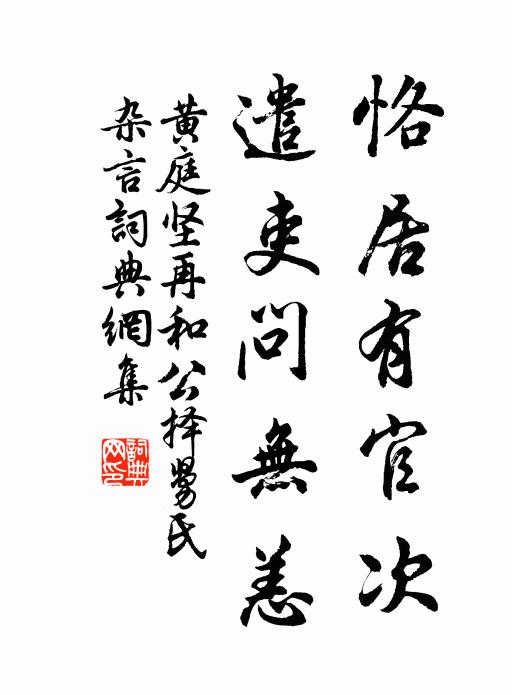 恪居有官次
遣吏問無恙
黄庭坚再和公择舅氏
杂言詞典網集
詞典網印